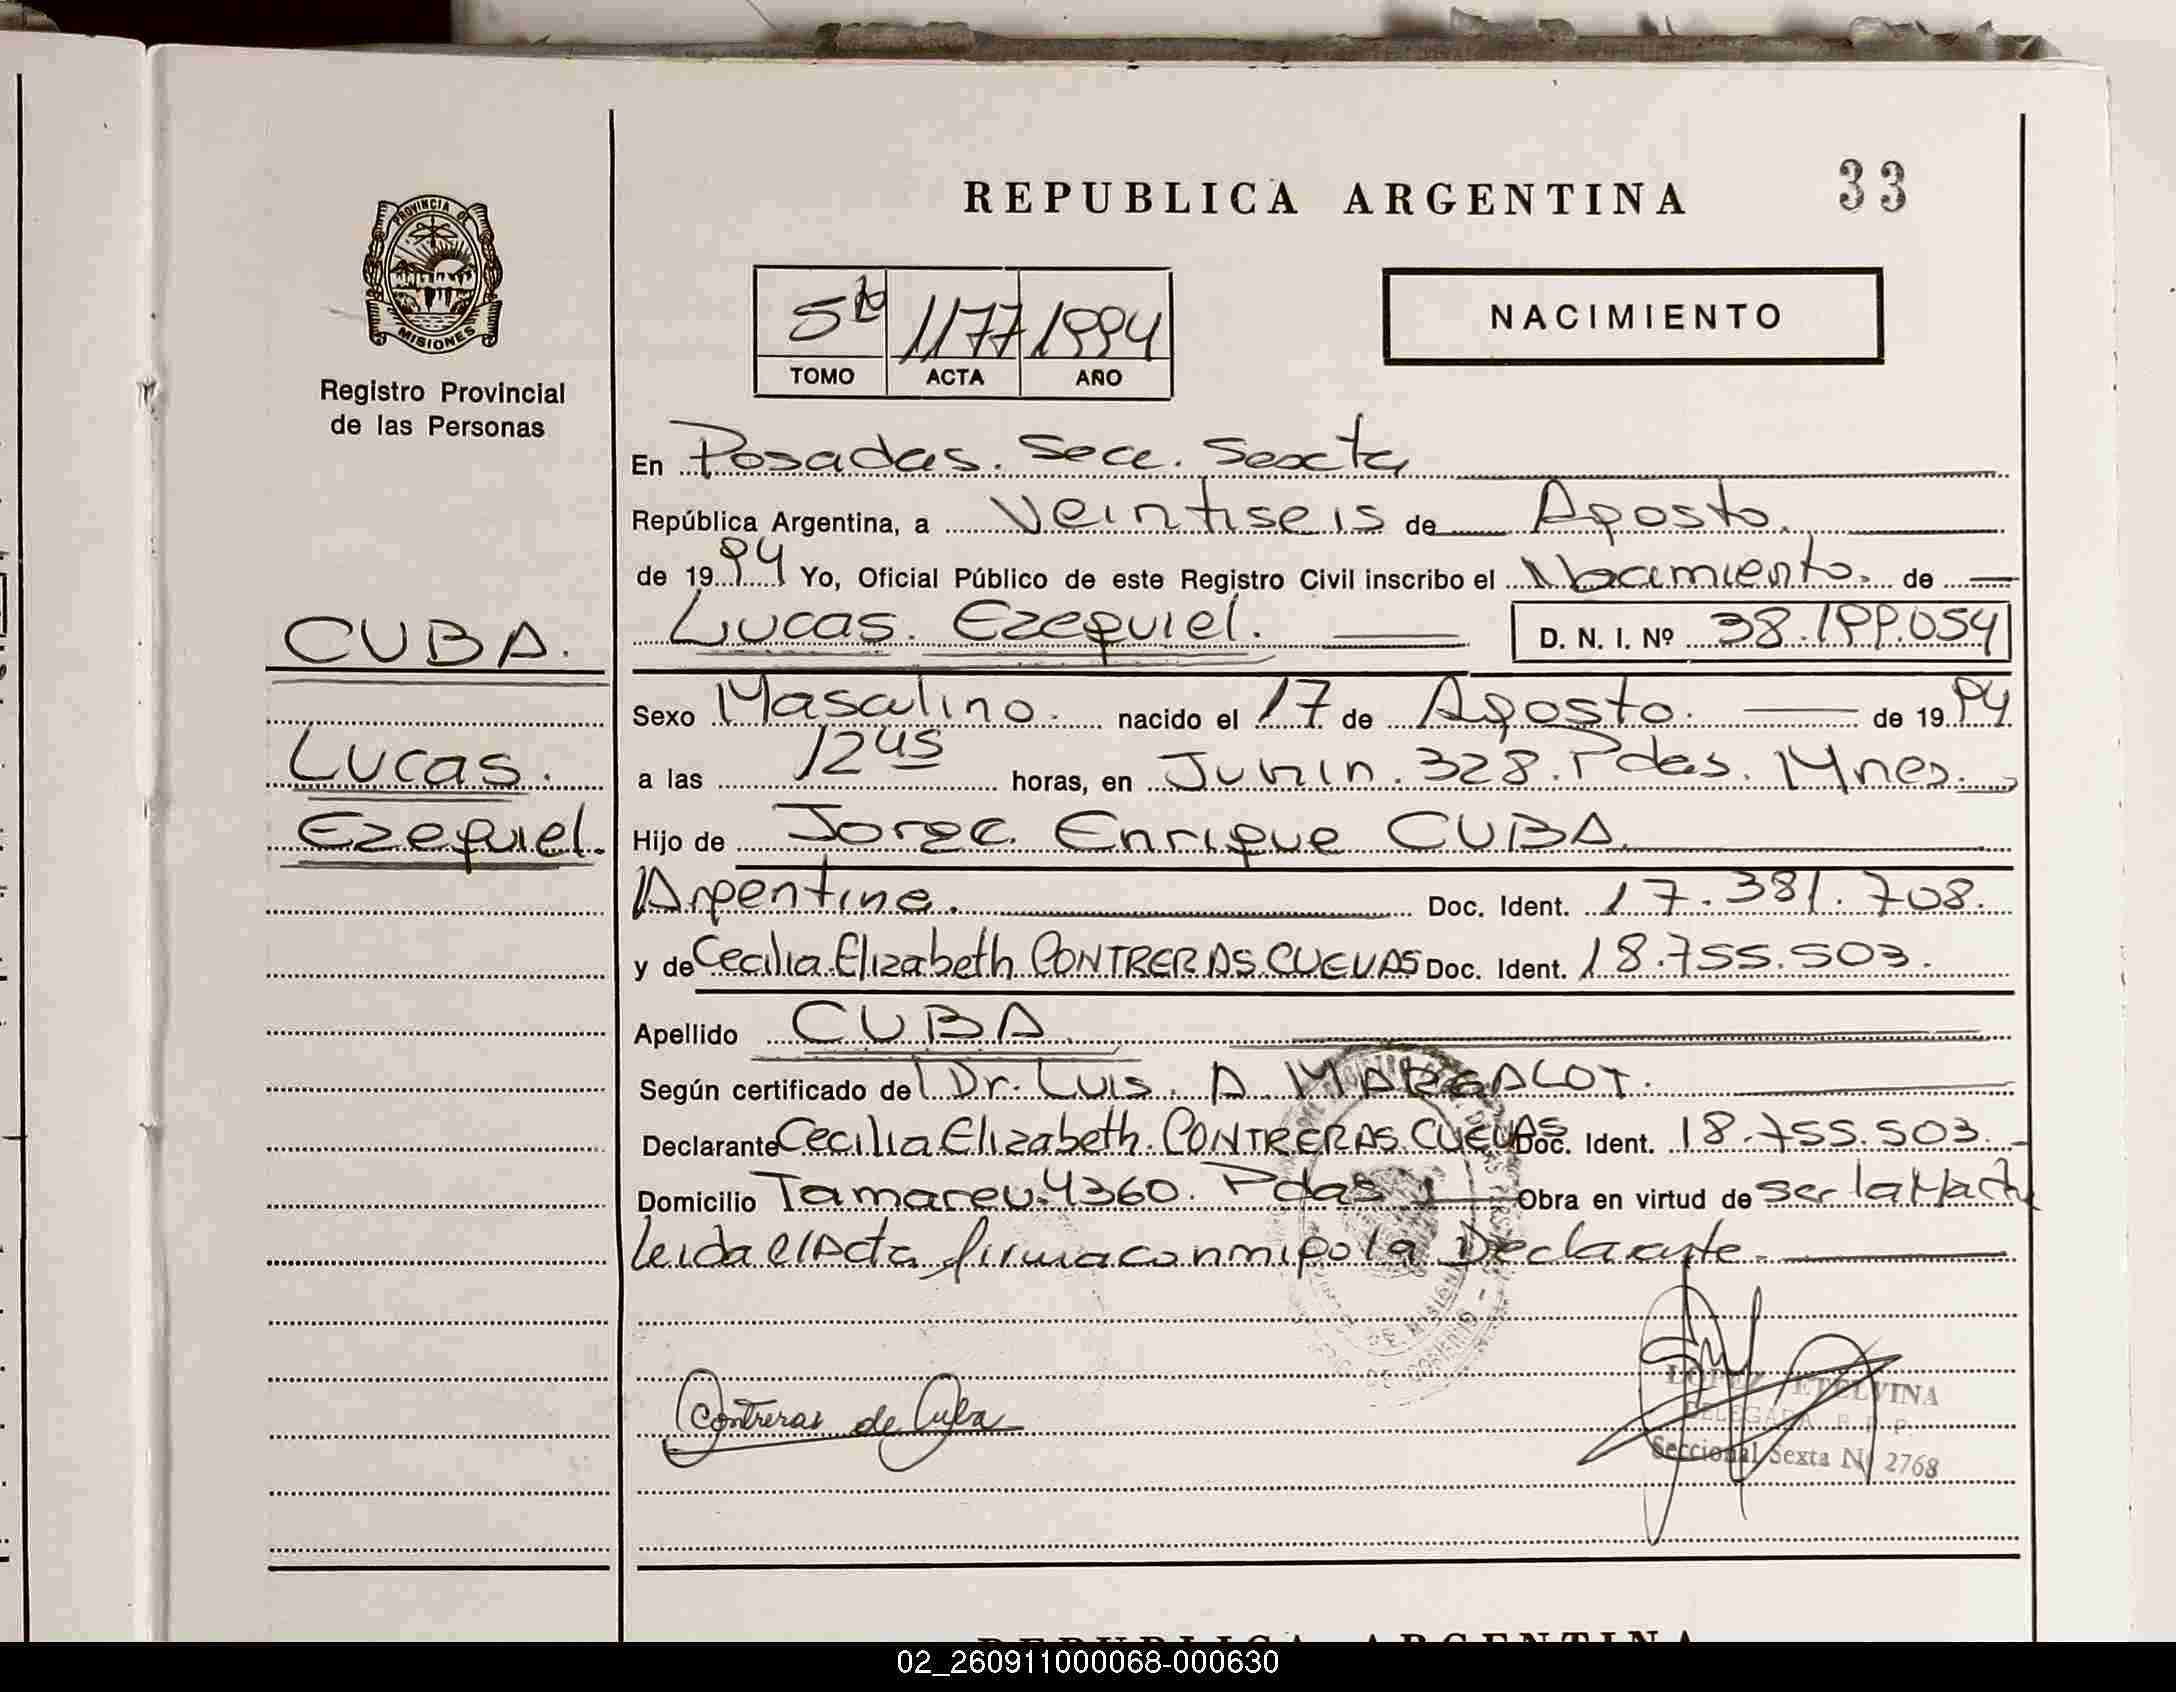 REPUBLICA ARGENTINA
33
PROVINCIA DE
MISIONES
Registro Provincial
de las Personas
5to 1177 1994
TOMO ACTA AÑO
NACIMIENTO
En Posadas. Secc. Sexta
República Argentina, a Veintiseis de Agosto.
de 1994 Yo, Oficial Público de este Registro Civil inscribo el Nacimiento. de
CUBA.
Lucas. Ezequiel. D. N. I. Nº 38.199.054
Sexo Masculino. nacido el 17 de Agosto. de 1994
Lucas.
a las 12 hs horas, en Junin. 328. Pdas. Mnes.
Ezequiel.
Hijo de Jorge. Enrique CUBA.
Argentino. Doc. Ident. 17.381.708.
y de Cecilia Elizabeth CONTRERAS CUEVAS Doc. Ident. 18.755.503.
Apellido CUBA
Según certificado del Dr. Luis. A. MARGALOT.
Declarante Cecilia Elizabeth. CONTRERAS CUEVAS Doc. Ident. 18.755.503.
Domicilio Tamareu. 4360. Pdas Obra en virtud de ser la Madre
leida el Acta firma conmigo la Declarante.
Contreras de Cuba
LOPEZ ETELVINA
DELEGADA R. P. P.
Seccional Sexta Nº 2768
REPUBLICA ARGENTINA
02_260911000068-000630